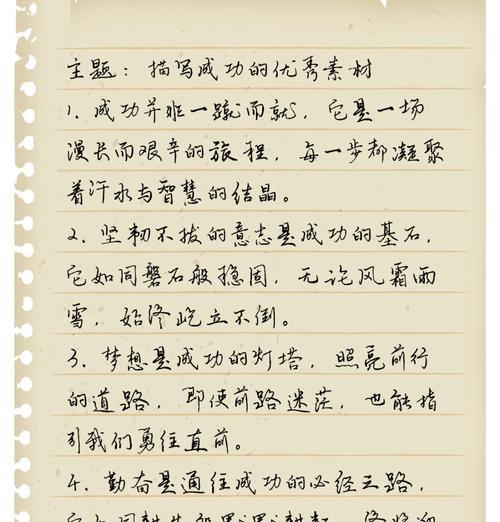 主题：描写成功的优秀素材
1、成功并非一蹴而就，它是一场
漫长而艰辛的旅程，每一步都凝聚
着汗水与智慧的结晶。
2、坚韧不拔的意志是成功的基石，
它如同磐石般稳固，无论风霜雨
雪，始终屹立不倒。
3、梦想是成功的灯塔，照亮前行
的道路，即使前路迷茫，也能指
引我们勇往直前。
4、勤奋是通往成功的必经之路，